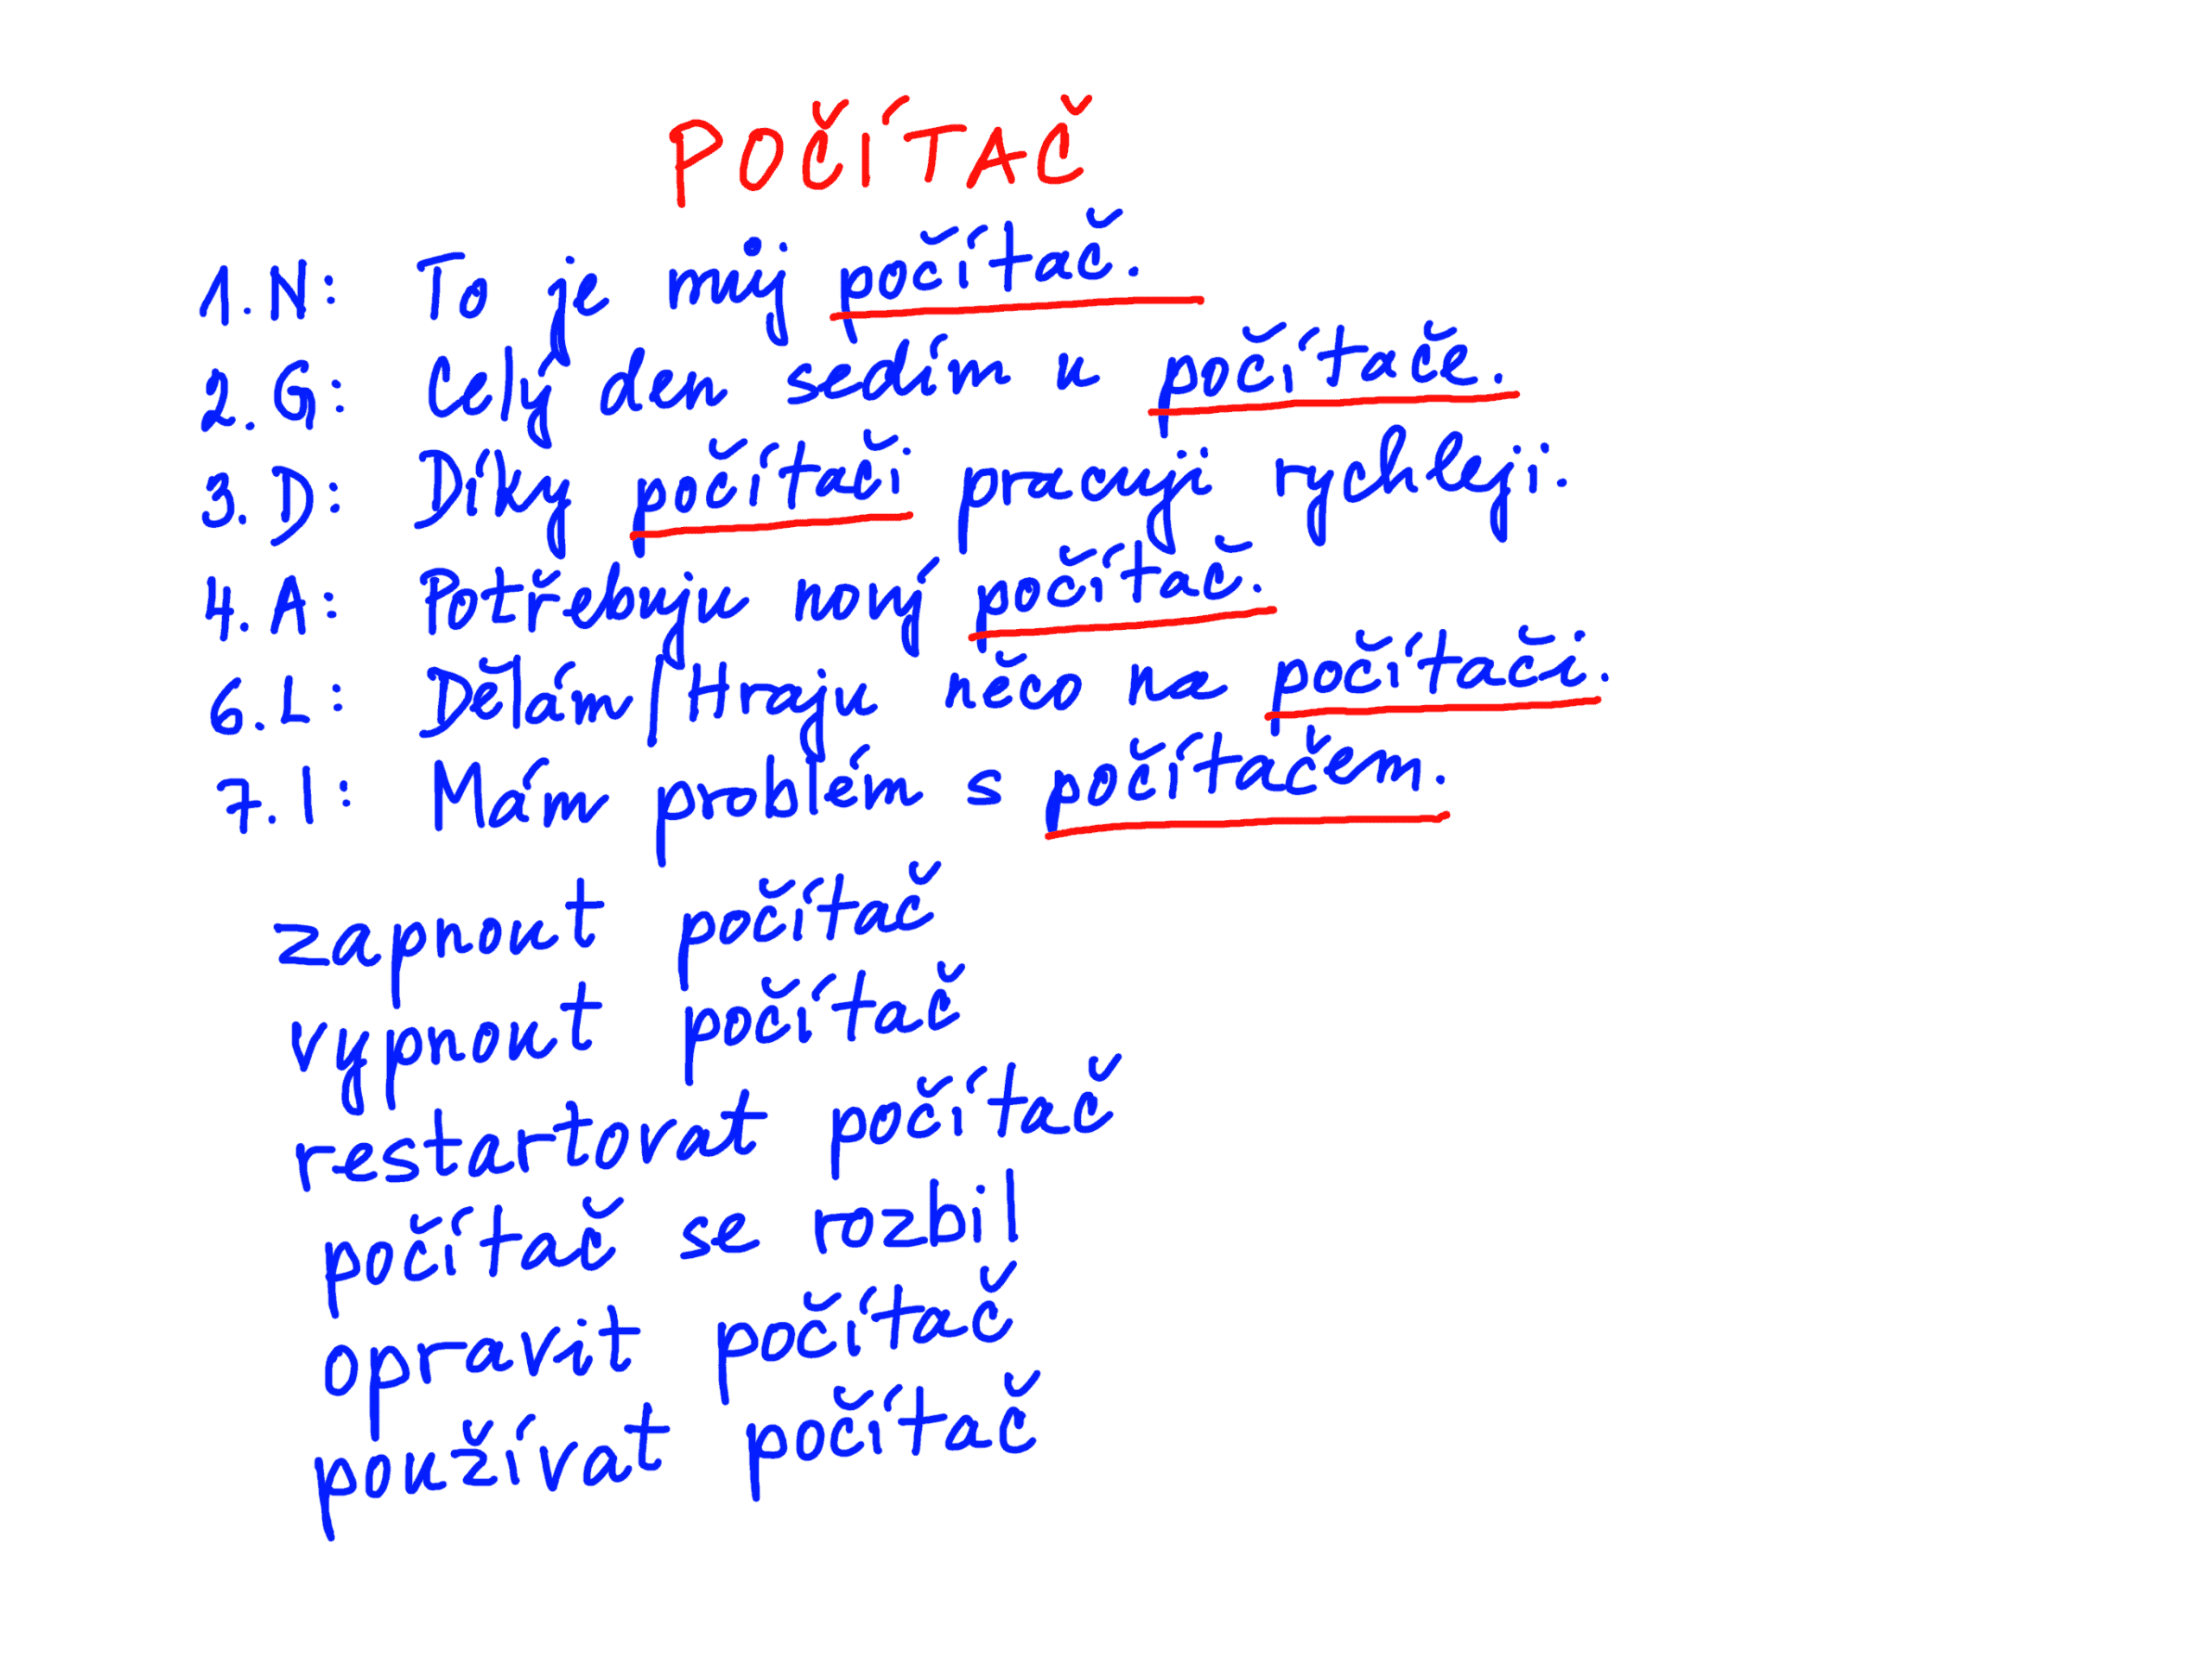 POČÍTAČ
1. N: To je můj počítač.
2. G: Celý den sedím u počítače.
3. D: Díky počítači pracuji rychleji.
4. A: Potřebuju nový počítač.
6. L: Dělám/Hraju něco na počítači.
7. I: Mám problém s počítačem.
zapnout počítač
vypnout počítač
restartovat počítač
počítač se rozbil
opravit počítač
používat počítač